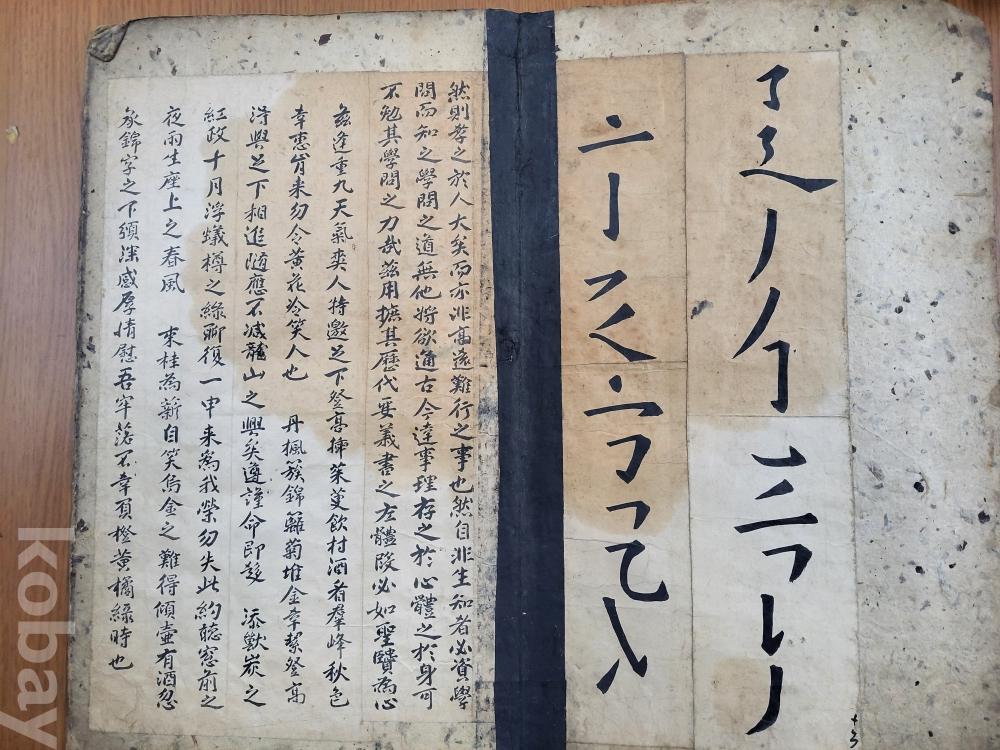 然則孝之於人大矣而亦非高遠難行之事也然自非生知者必資學
問而知之學問之道無他將欲通古今達事理存之於心體之於身可
不勉其學問之力哉茲用摭其歷代要義書之左體股必如聖賢為心
茲逢重九天氣爽人特邀足下登高揷茱萸飲村酒看群峰秋色
幸惠肯来勿令黃花冷笑人也 丹楓簇錦籬菊堆金幸挈登高
得與足下相追隨應不减龍山之興矣遵謹命即趍 添獸炭之
紅政十月浮蟻樽之綠聊復一申来為我榮勿失此約聽窓前之
夜雨生座上之春風 來桂為薪自笑烏金之難得傾壺有酒忽
承錦字之下頒深感厚情慰吾牢落不幸負橙黃橘綠時也
kobay